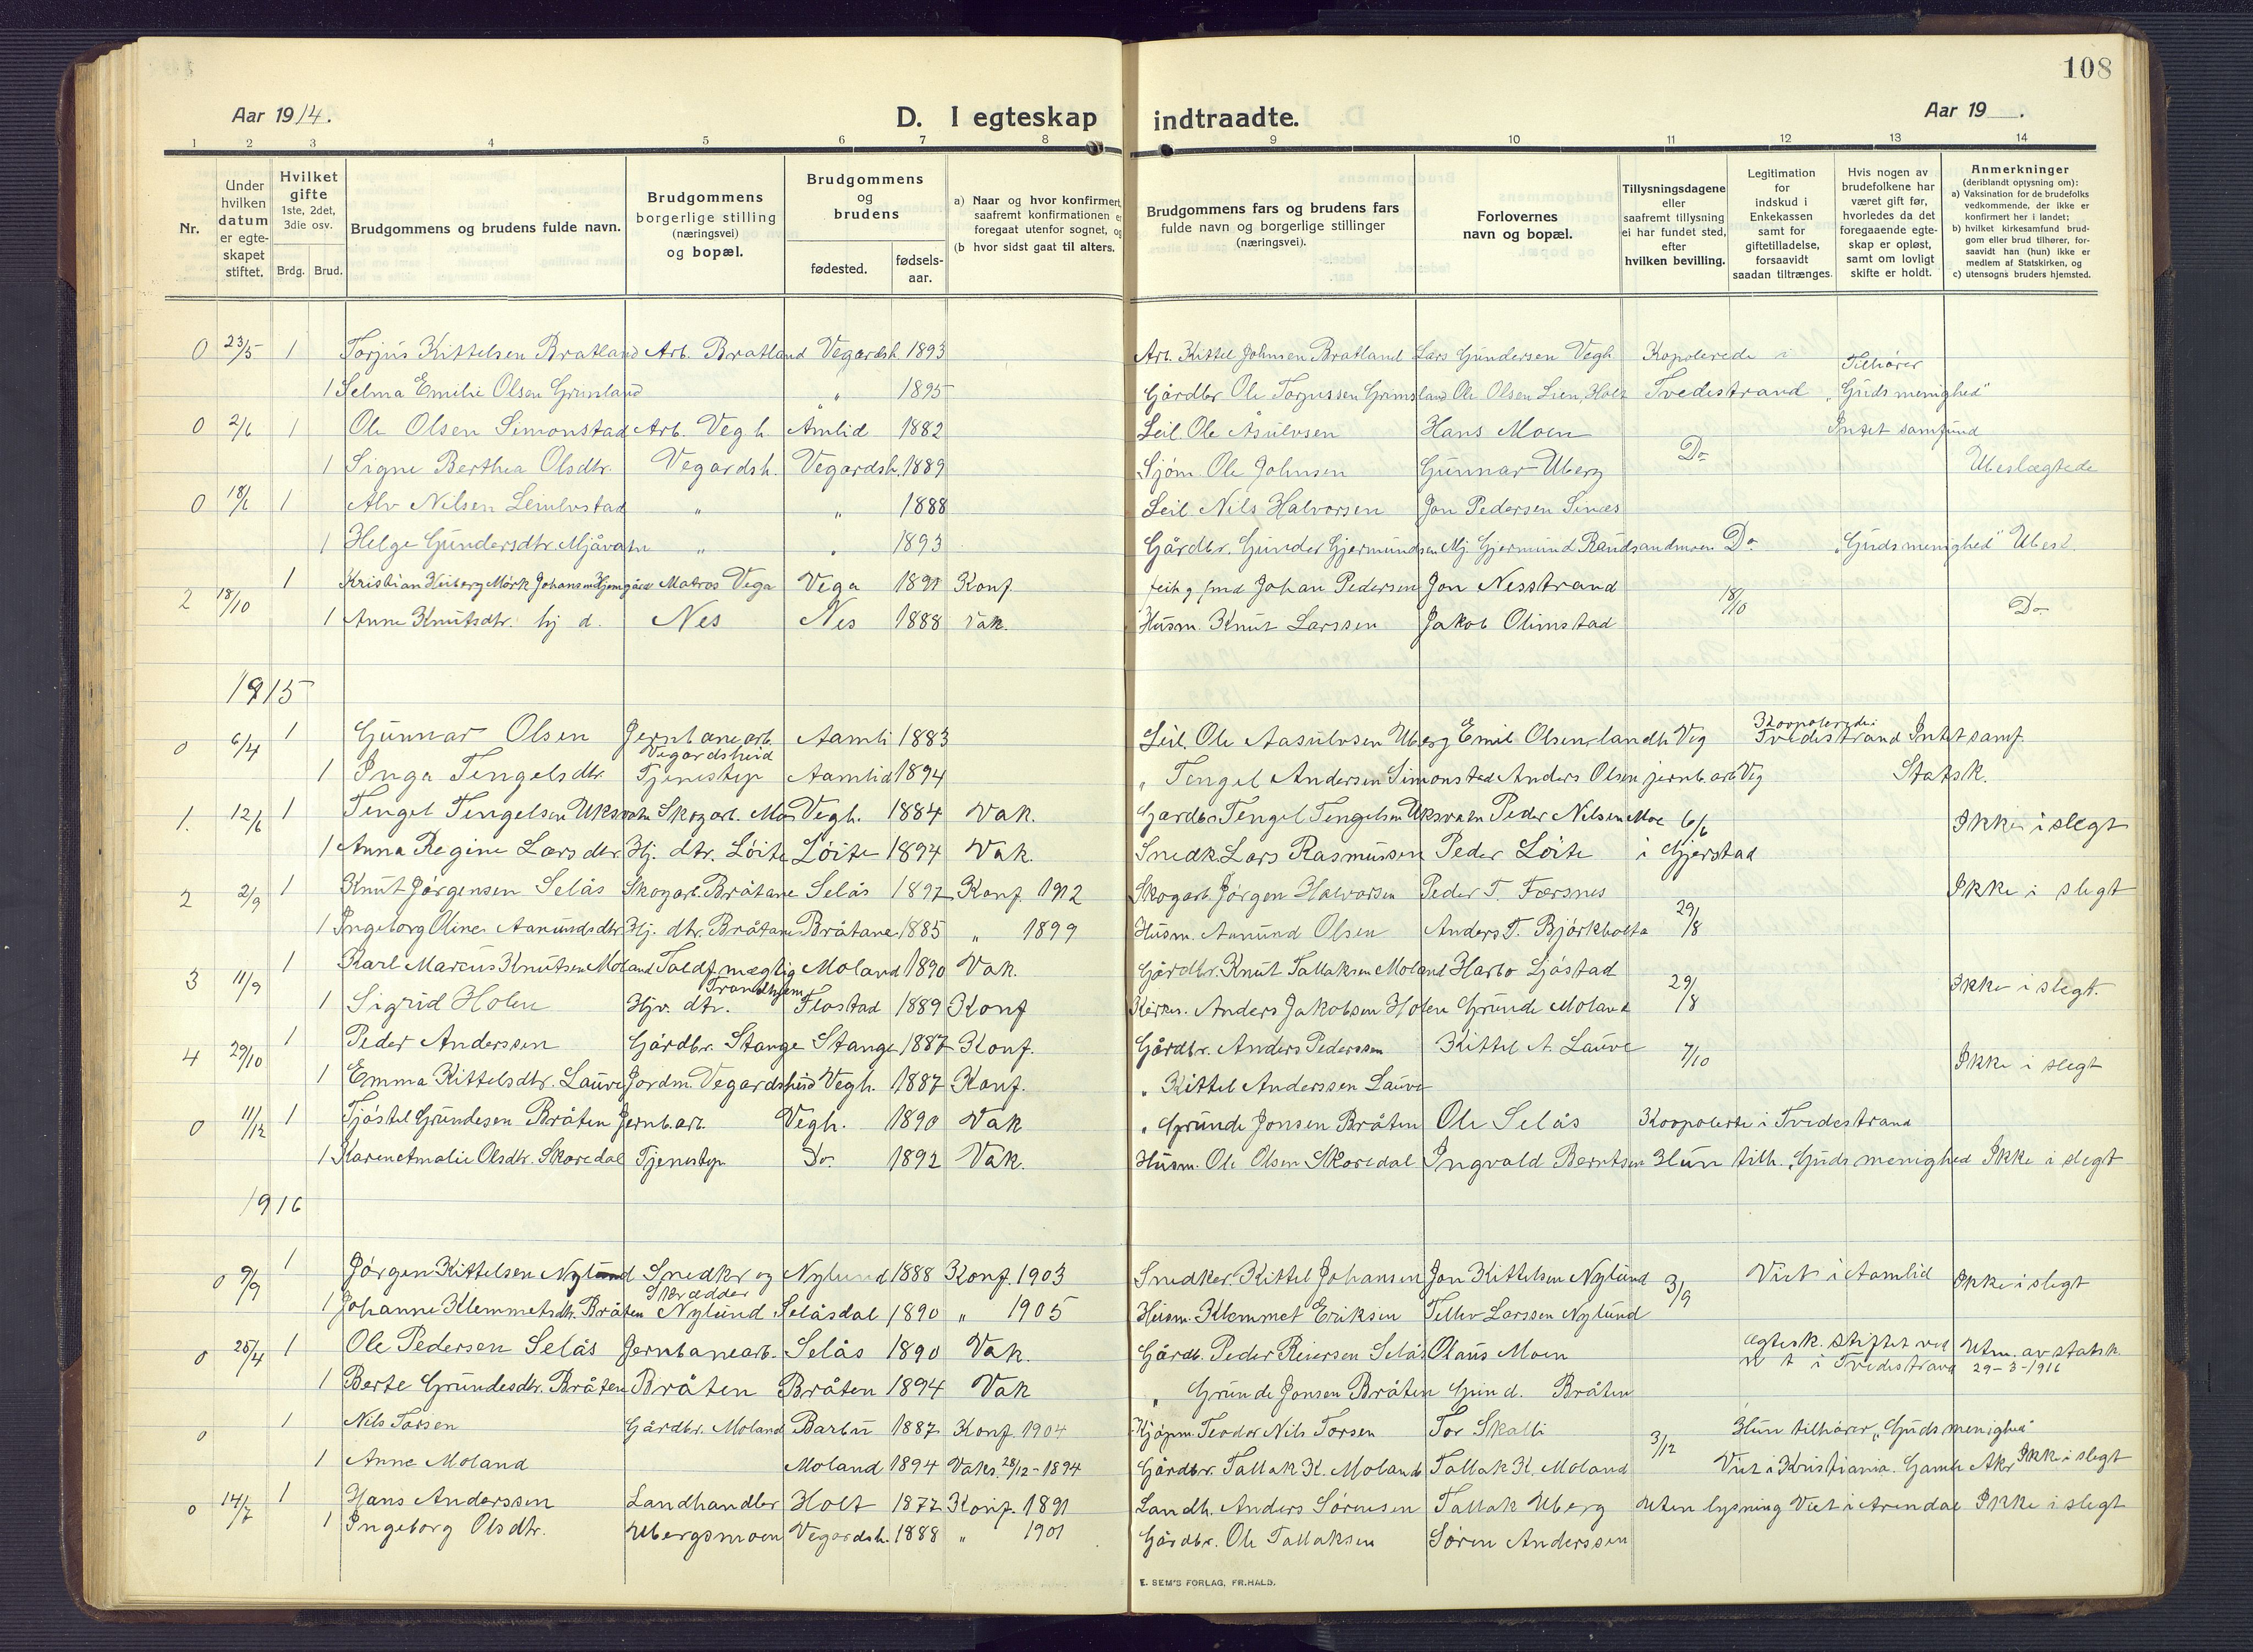 108
Aar 1914.
D. I egteskap indtraadte.
Aar 19 .
1 2 3 4 5 6 7 8 9 10 11 12 13 14
Nr.
Under hvilken datum er egteskapet stiftet.
Hvilket gifte 1ste, 2det, 3die osv.
Brdg. Brud.
Brudgommens og brudens fulde navn.
Brudgommens borgerlige stilling (næringsvei) og bopæl.
Brudgommens og brudens
fødested.
fødsels-aar.
a) Naar og hvor konfirmert, saafremt konfirmationen er foregaat utenfor sognet, og
(b hvor sidst gaat til alters.
Brudgommens fars og brudens fars fulde navn og borgerlige stillinger (næringsvei).
Forlovernes navn og bopæl.
Tillysningsdagene eller saafremt tillysning ei har fundet sted, efter hvilken bevilling.
Legitimation for indskud i Enkekassen samt for giftetilladelse, forsaavidt saadan tiltrænges.
Hvis nogen av brudefolkene har været gift før, hvorledes da det foregaaende egteskap er opløst, samt om lovligt skifte er holdt.
Anmerkninger (deriblandt optysning om):
a) Vaksination for de brudefolks vedkommende, der ikke er konfirmert her i landet;
b) hvilket kirkesamfund brudgom eller brud tilhører, forsaavidt han (hun) ikke er medlem af Statskirken, og
c) utensogns bruders hjemsted.
0 23/5 1 Torjus Kittelsen Bratland Arb. Bratland Vegardsh. 1893 Arb. Kittel Johnsen Bratland Lars Gundersen Vegh Kopolerede i Tilhører
1 Selma Emilie Olsen Grimland " 1895 Gårdbr Ole Torjussen Grimsland Ole Olsen Lien, Holt Tvedestrand "Guds menighed"
0 2/6 1 Ole Olsen Simonstad Arb. Vegh. Åmlid 1882 Leil. Ole Åsulvsen Hans Moen Intet samfund
1 Signe Berthea Olsdtr. Vegardsh. Vegardsh. 1889 Sjøm. Ole Johnsen Gunnar Uberg Do Ubeslægtede
0 18/6 1 Alv Nilsen " " 1888 Leil. Nils Halvorsen Jon Pedersen Sines
1 Helge Gundersdtr. Mjåvatn " " 1893 Gårdbr. Gunder Gjermundsen Mj. Gjermund Raudsandmoen Do "Guds menighed" Ubesl.
2 18/10 1 Kristian Heiberg Mørk Johansen Matros Vega Vega 1891 Konf. Johan Pedersen Jon Nesstrand 18/10
1 Anne Knutsdtr. hj d. Nes Nes 1888 Vak. Husm. Knut Larssen Jakob Olimstad Do
1915
0 6/4 1 Gunnar Olsen Jernbanearb. Vegardsheid Aamli 1883 Leil. Ole Aasulvsen Uberg Emil Olsen, landh. Veg Tvedestrand Intet samf.
1 Inga Tengelsdtr. Tjenestep Aamlid 1894 " Tengel Andersen Simonstad Anders Olsen jernb.arb Veg Statsk.
1. 12/6 1 Tengel Tengelsen Uksvatn Skogarb. Mo Vegh. 1884 Vak. Gardbr Tengel Tengelsen Uksvatn Peder Nilsen Moe 6/6 Ikke i slegt
1 Anna Regine Larsdtr. Hj. dtr. Løite Løite 1894 Vak. Snedk. Lars Rasmussen Peder Løite i Gjerstad
2 2/9 1 Knut Jørgensen Selås Skogarb. Bråtane Selås 1897 Konf. 1912 Skogarb. Jørgen Halvorsen Peder T. Færsnes Ikke i slegt
1 Ingeborg Oline Aanundsdtr Hj. dtr. Bråtane Bråtane 1885 " 1899 Husm. Aanund Olsen Anders T. Bjørkholta 29/8
3 11/9 1 Karl Marcus Knutsen Moland Toldfmægtig Trondhjem Moland 1890 Vak. Gårdbr. Knut Tallaksen Moland Harbo Ljøstad
1 Sigrid Holen Hjv. dtr. Flostad 1889 Konf Kirkes. Anders Jakobsen Holen Grunde Moland 29/8 Ikke i slegt.
4 29/10 1 Peder Anderssen Gårdbr. Stange Stange 1887 Konf. Gårdbr. Anders Pederssen Kittel A. Lauve 7/10 Ikke i slegt
1 Emma Kittelsdtr. Lauve Jordm. Vegardsheid Vegh. 1887 Konf. " Kittel Anderssen Lauve
0 11/12 1 Tjøstel Grundesen Bråten Jernb.arb. Vegh. 1890 Vak " Grunde Jonsen Bråten Ole Selås Koopolerte i Tvedestrand
1 Karen Amalie Olsdtr. Skoredal Tjenestep Do. 1892 Vak. Husm. Ole Olsen Skoredal Ingvald Berntsen Hun tilh. "Guds menighed Ikke i slegt
1916
0 9/9 1 Jørgen Kittelsen Nylund Snedkr og Skrædder Nylund 1888 Konf. 1903 Snedker. Kittel Johansen Jon Kittelsen Nylund 3/9 Viet i Aamlid Ikke i slegt
1 Johanne Klemmetsdtr. Bråten Nylund Selåsdal 1890 " 1905 Husm. Klemmet Eriksen Tellev Larssen Nylund
0 28/4 1 Ole Pedersen Selås Jernbanearb. Selås 1890 Vak. Gårdb. Peder Reiersen Selås Olaus Moen ægtesk. stiftet ved i Tvedestrand Utm. av statsk. 29-3-1916
1 Berte Grundesdtr. Bråten Bråten Bråten 1894 Vak " Grunde Jonsen Bråten Grund. Bråten
0 1 Nils Torsen Gårdbr. Moland Barbu 1887 Konf. 1904 Kjøpm. Teodor Nils Torsen Tor Skalli 3/12 Hun tilhører "Guds menighed"
1 Anne Moland Moland 1894 Vaks. 28/12-1894 Gårdbr. Tallak K. Moland Tallak K. Moland Viet i Kristiania. Gamle Aker Ikke i slegt
0 14/7 1 Hans Anderssen Landhandler Holt 1877 Konf. 1891 Landh. Anders Sørensen Tallak Uberg Uten lysning Viet i Arendal Ikke i slegt
1 Ingeborg Olsdtr. Ubergsmoen Vegardsh. 1888 " 1901 Gårdbr. Ole Tallaksen Søren Anderssen
E. SEM'S FORLAG, FR.HALD.